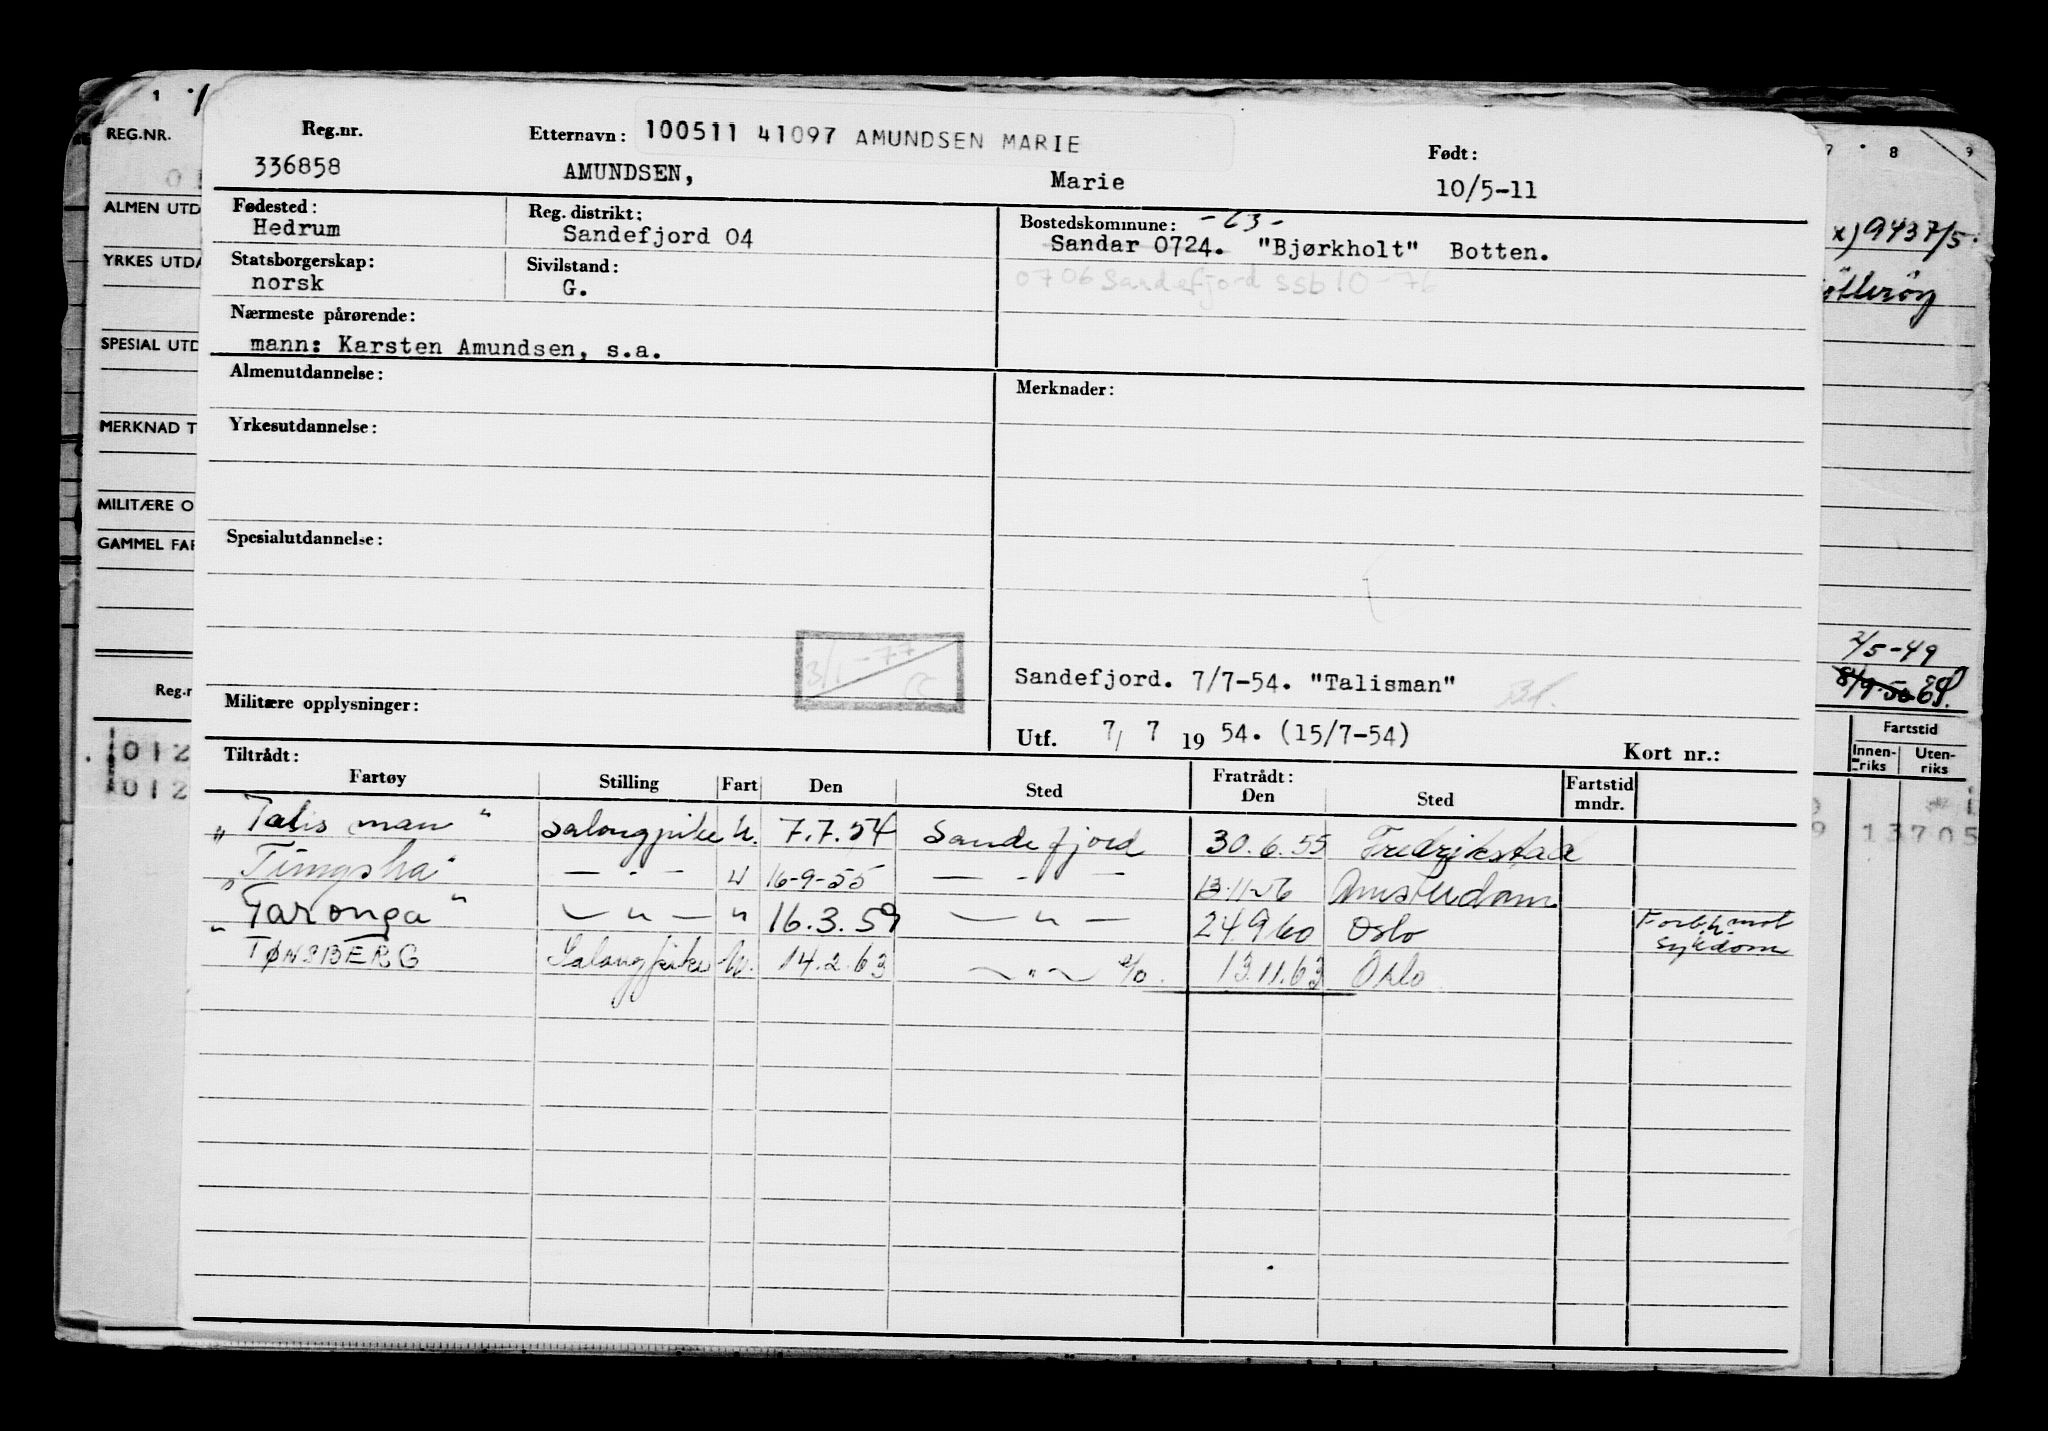 REG.NR.
ALMEN UTD
YRKES UTDA
SPESIAL UTD
MERKNAD T
MILITÆRE O
GAMMEL FAR
Reg.n
012
012
Reg.nr. Etternavn: 100511 41097 AMUNDSEN MARIE Født:
336858 AMUNDSEN, Marie 10/5-11
Fødested: Reg. distrikt: Bostedskommune: -63-
Hedrum Sandefjord 04 Sandar 0724. "Bjørkholt" Botten.
Statsborgerskap: Sivilstand: 0706 Sandefjord ssb 10-76
norsk G.
Nærmeste pårørende:
mann: Karsten Amundsen, s.a.
Almenutdannelse: Merknader:
Yrkesutdannelse:
Spesialutdannelse:
3/1-77
Sandefjord. 7/7-54. "Talisman"
Militære opplysninger:
Utf. 7/ 7 19 54. (15/7-54) Kort nr.:
Tiltrådt: Fratrådt:
Fartøy Stilling Fart Den Sted Den Sted Fartstid mndr.
"Talisman" Salongpike U. 7.7.54 Sandefjord 30.6.55 Fredrikstad
— · — 16-9-55 — · — Amsterdam
"Taronga" — " — " 16.3.59 — " — 24.9.60 Oslo Forb.h. mot sykdom
TØNSBERG Salongpike U. 14.2.63 — " — 13.11.63 Oslo
8 9
x) 9437/5
2/5-49
Fartstid
Innen-riks Uten-riks
13705